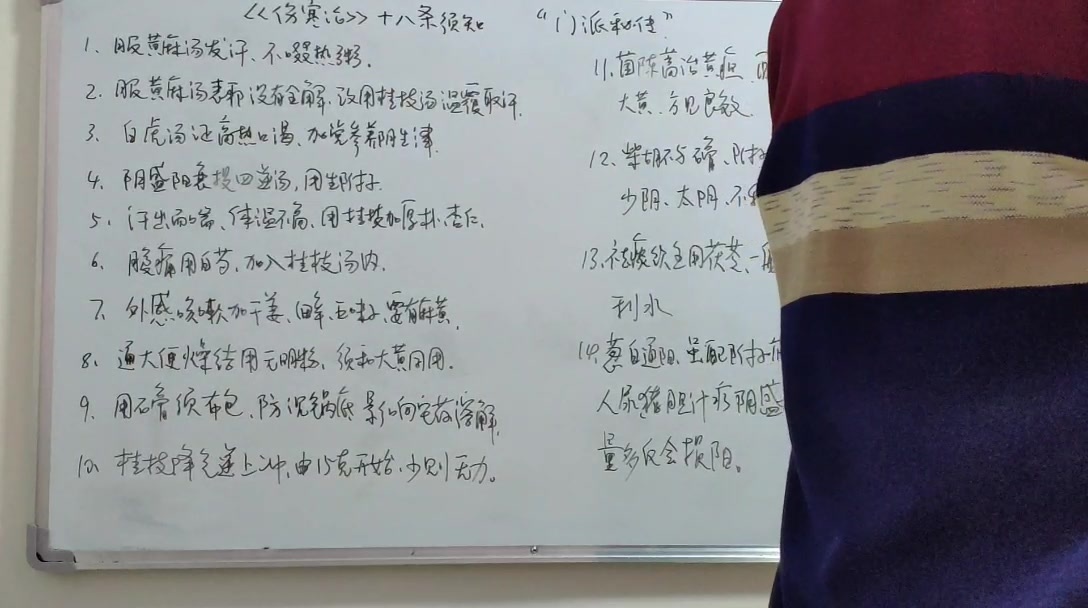 《《伤寒论》》十八条须知 “门派秘传”
1、服黄麻汤发汗、不啜热粥.
2、服黄麻汤表邪没有全解、改用桂枝汤温覆取汗.
3、白虎汤证高热口渴、加党参养阴生津.
4、阴盛阳衰投四逆汤,用生附子.
5、汗出而喘、体温不高、用桂枝加厚朴、杏仁.
6、腹痛用白芍、加入桂枝汤内.
7、外感咳嗽加干姜、细辛、五味子、要有麻黄.
8、通大便燥结用元明粉、须和大黄同用.
9、用石膏须布包、防沉锅底影响它药溶解.
10、桂枝降气逆上冲、由15克开始、少则无力。
11、茵陈蒿治黄疸
大黄、方见良效.
12、柴胡不与石膏、附
少阴、太阴、不
13、祛痰饮重用茯苓、一
利水
14、葱白通阳、虽配附子
人尿猪胆汁疗阴盛
量多反会损阳。